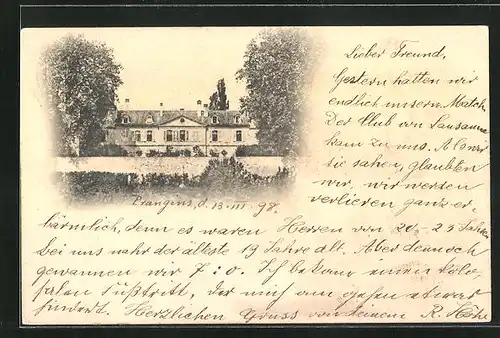 Lieber Freund,
Gestern hatten wir
endlich unsern Match.
Der Club von Lausanne
kam zu uns. Als wir
sie sahen, glaubten
wir, wir werden
verlieren ganz er-
Prangins, d. 13. III. 98.
bärmlich, denn es waren Herren von 20-25 Jahren
bei uns wahr der älteste 19 Jahre alt. Aber dennoch
gewannen wir 7:0. Ich bekam einen kolo-
salen Fußtritt, der mich am gehen etwas
hindert. Herzlichen Gruss von deinem R.